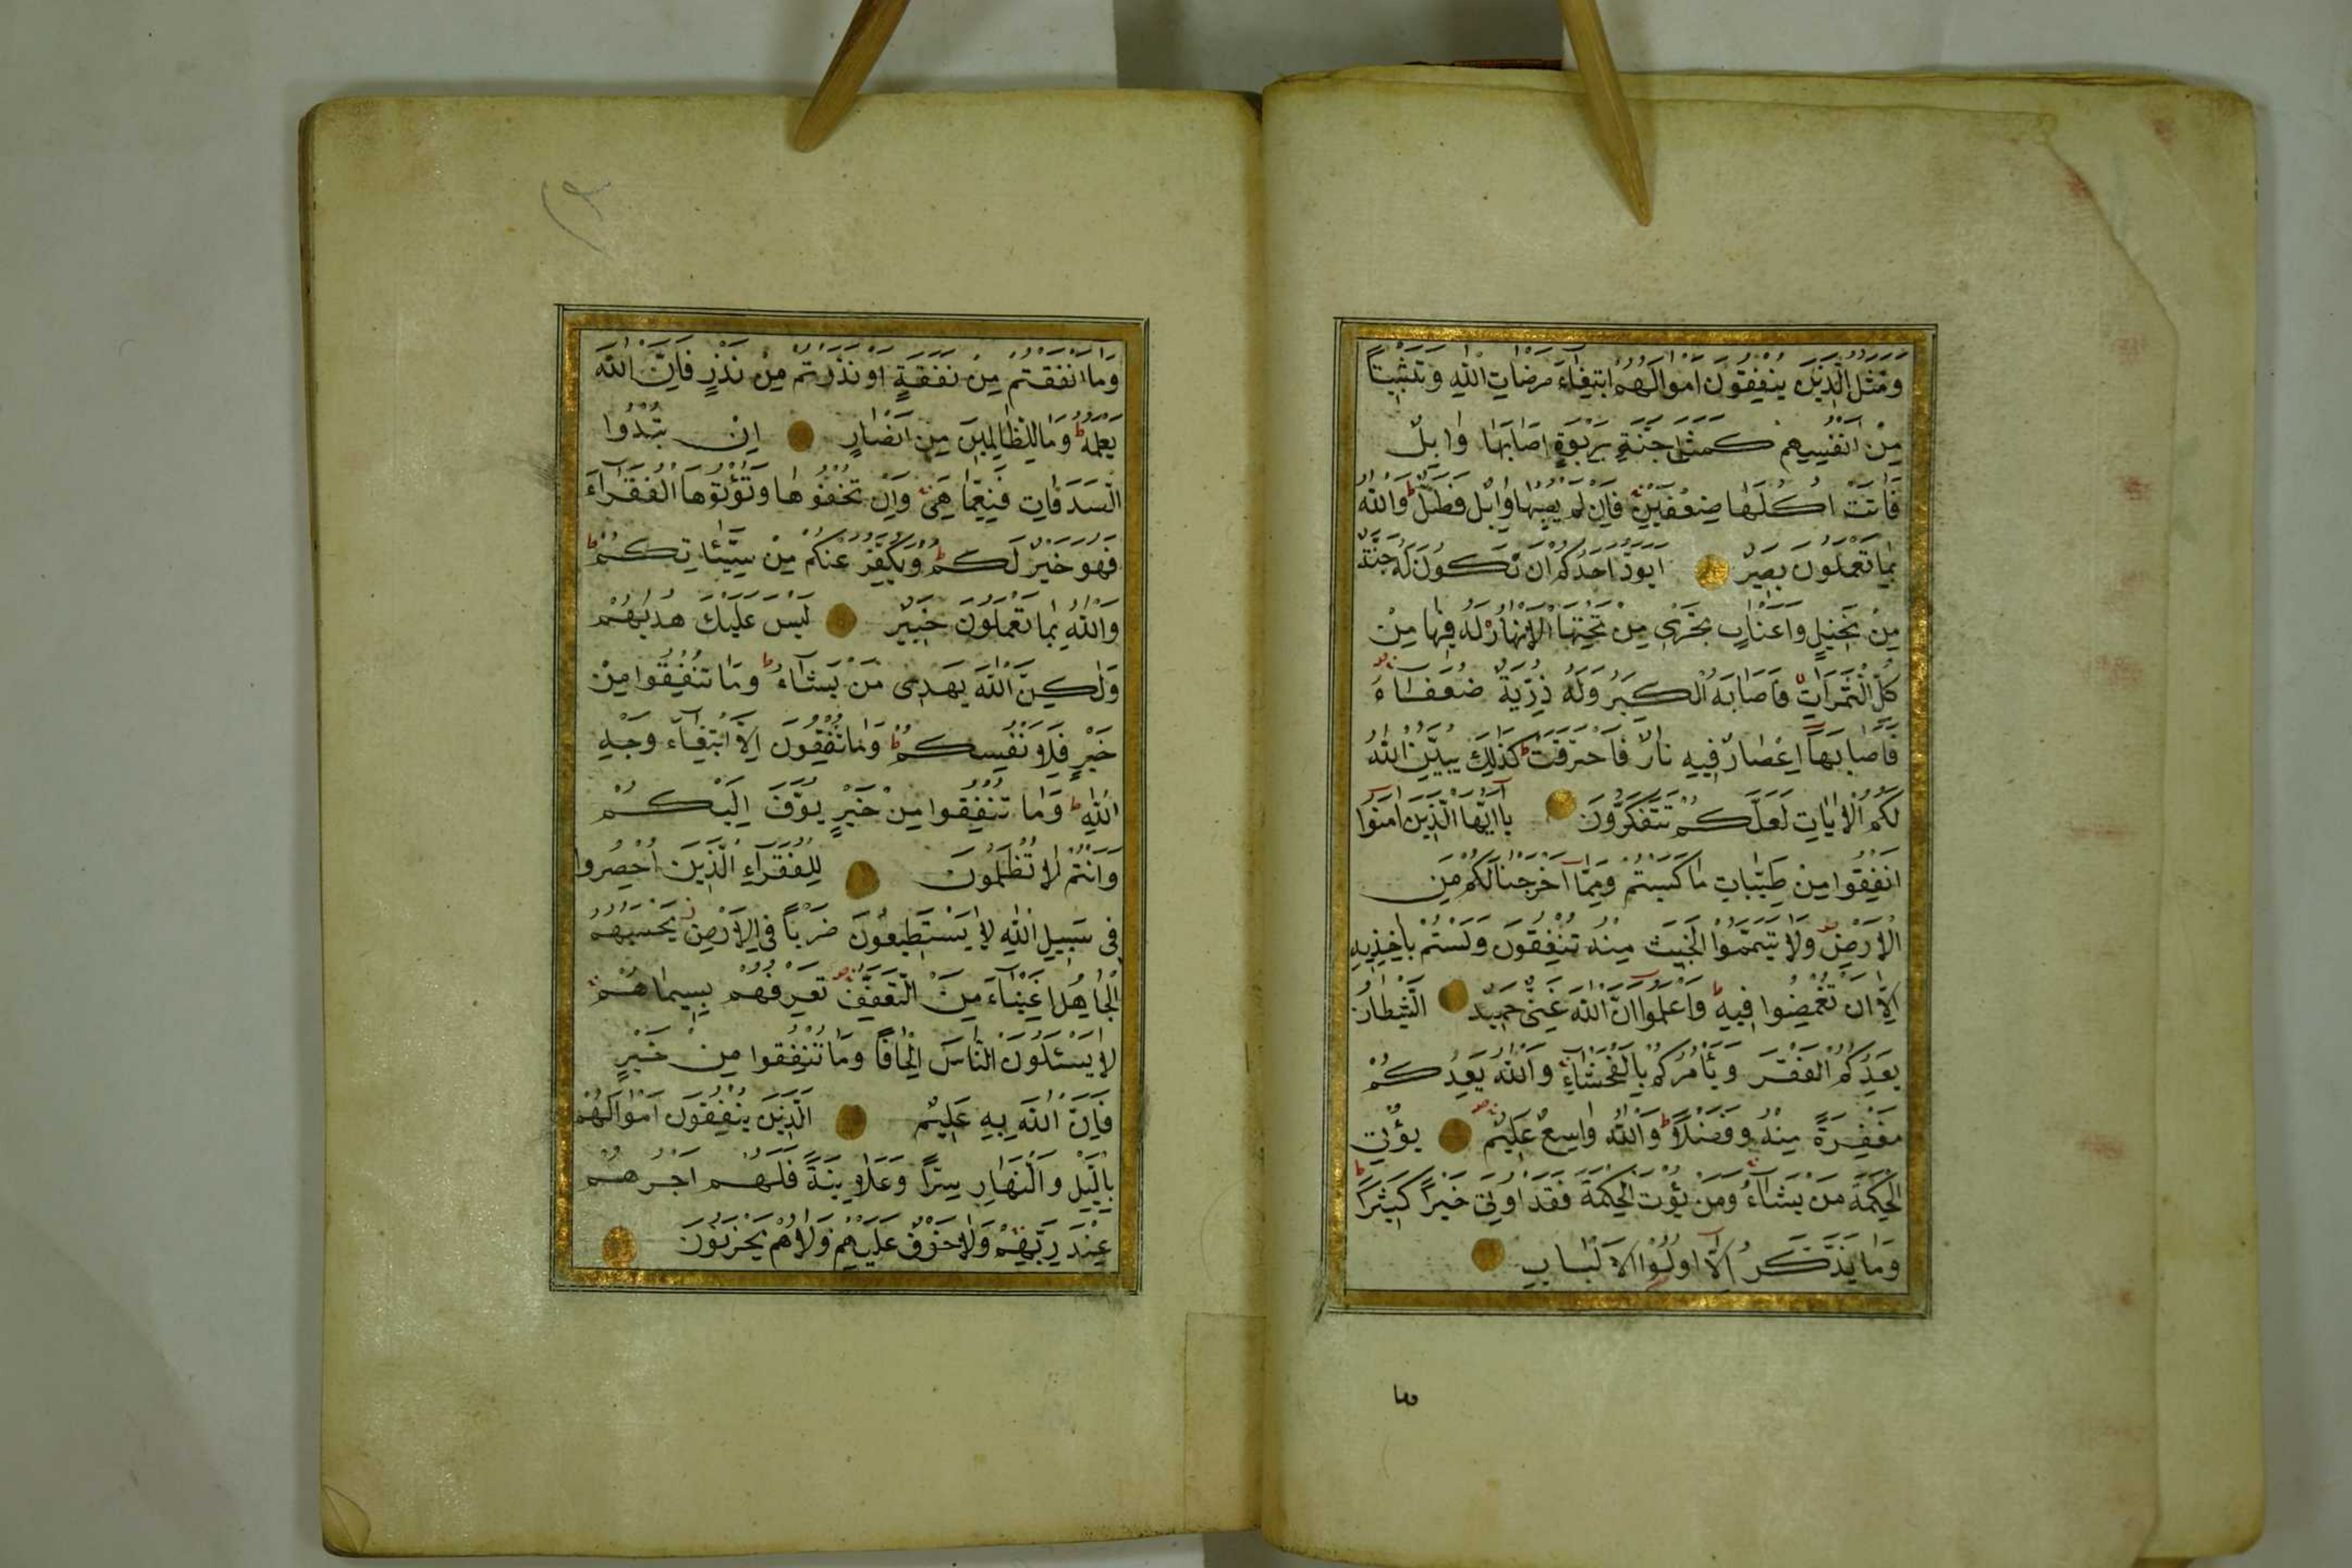 وَمَثَلُ الَّذِينَ يُنْفِقُونَ اَمْوَالَهُمُ ابْتِغَاءَ مَرْضَاتِ اللهِ وَتَثْبِيتًا
مِنْ اَنْفُسِهِمْ كَمَثَلِ جَنَّةٍ بِرَبْوَةٍ اَصَابَهَا وَابِلٌ
فَاٰتَتْ اُكُلَهَا ضِعْفَيْنِ فَاِنْ لَمْ يُصِبْهَا وَابِلٌ فَطَلٌّ وَاللهُ
بِمَا تَعْمَلُونَ بَصِيرٌ اَيَوَدُّ اَحَدُكُمْ اَنْ تَكُونَ لَهُ جَنَّةٌ
مِنْ نَخِيلٍ وَاَعْنَابٍ تَجْرِى مِنْ تَحْتِهَا الْاَنْهَارُ لَهُ فِيهَا مِنْ
كُلِّ الثَّمَرَاتِ فَاَصَابَهُ الْكِبَرُ وَلَهُ ذُرِّيَّةٌ ضُعَفَاءُ
فَاَصَابَهَا اِعْصَارٌ فِيهِ نَارٌ فَاحْتَرَقَتْ كَذٰلِكَ يُبَيِّنُ اللهُ
لَكُمُ الْاٰيَاتِ لَعَلَّكُمْ تَتَفَكَّرُونَ يَا اَيُّهَا الَّذِينَ اٰمَنُوا
اَنْفِقُوا مِنْ طَيِّبَاتِ مَا كَسَبْتُمْ وَمِمَّا اَخْرَجْنَا لَكُمْ مِنَ
الْاَرْضِ وَلَا تَيَمَّمُوا الْخَبِيثَ مِنْهُ تُنْفِقُونَ وَلَسْتُمْ بِاٰخِذِيهِ
اِلَّا اَنْ تُغْمِضُوا فِيهِ وَاعْلَمُوا اَنَّ اللهَ غَنِىٌّ حَمِيدٌ الشَّيْطَانُ
يَعِدُكُمُ الْفَقْرَ وَيَأْمُرُكُمْ بِالْفَحْشَاءِ وَاللهُ يَعِدُكُمْ
مَغْفِرَةً مِنْهُ وَفَضْلًا وَاللهُ وَاسِعٌ عَلِيمٌ يُؤْتِى
الْحِكْمَةَ مَنْ يَشَاءُ وَمَنْ يُؤْتَ الْحِكْمَةَ فَقَدْ اُوتِىَ خَيْرًا كَثِيرًا
وَمَا يَذَّكَّرُ اِلَّا اُولُوا الْاَلْبَابِ
وما
وَمَا اَنْفَقْتُمْ مِنْ نَفَقَةٍ اَوْ نَذَرْتُمْ مِنْ نَذْرٍ فَاِنَّ اللهَ
يَعْلَمُهُ وَمَا لِلظَّالِمِينَ مِنْ اَنْصَارٍ اِنْ تُبْدُوا
السَّدَقَاتِ فَنِعِمَّا هِىَ وَاِنْ تُخْفُوهَا وَتُؤْتُوهَا الْفُقَرَاءَ
فَهُوَ خَيْرٌ لَكُمْ وَيُكَفِّرُ عَنْكُمْ مِنْ سَيِّئَاتِكُمْ
وَاللهُ بِمَا تَعْمَلُونَ خَبِيرٌ لَيْسَ عَلَيْكَ هُدٰيهُمْ
وَلٰكِنَّ اللهَ يَهْدِى مَنْ يَشَاءُ وَمَا تُنْفِقُوا مِنْ
خَيْرٍ فَلِاَنْفُسِكُمْ وَمَا تُنْفِقُونَ اِلَّا ابْتِغَاءَ وَجْهِ
اللهِ وَمَا تُنْفِقُوا مِنْ خَيْرٍ يُوَفَّ اِلَيْكُمْ
وَاَنْتُمْ لَا تُظْلَمُونَ لِلْفُقَرَاءِ الَّذِينَ اُحْصِرُوا
فِى سَبِيلِ اللهِ لَا يَسْتَطِيعُونَ ضَرْبًا فِى الْاَرْضِ يَحْسَبُهُمُ
الْجَاهِلُ اَغْنِيَاءَ مِنَ التَّعَفُّفِ تَعْرِفُهُمْ بِسِيمَاهُمْ
لَا يَسْئَلُونَ النَّاسَ اِلْحَافًا وَمَا تُنْفِقُوا مِنْ خَيْرٍ
فَاِنَّ اللهَ بِهِ عَلِيمٌ الَّذِينَ يُنْفِقُونَ اَمْوَالَهُمْ
بِالَّيْلِ وَالنَّهَارِ سِرًّا وَعَلَانِيَةً فَلَهُمْ اَجْرُهُمْ
عِنْدَ رَبِّهِمْ وَلَا خَوْفٌ عَلَيْهِمْ وَلَا هُمْ يَحْزَنُونَ